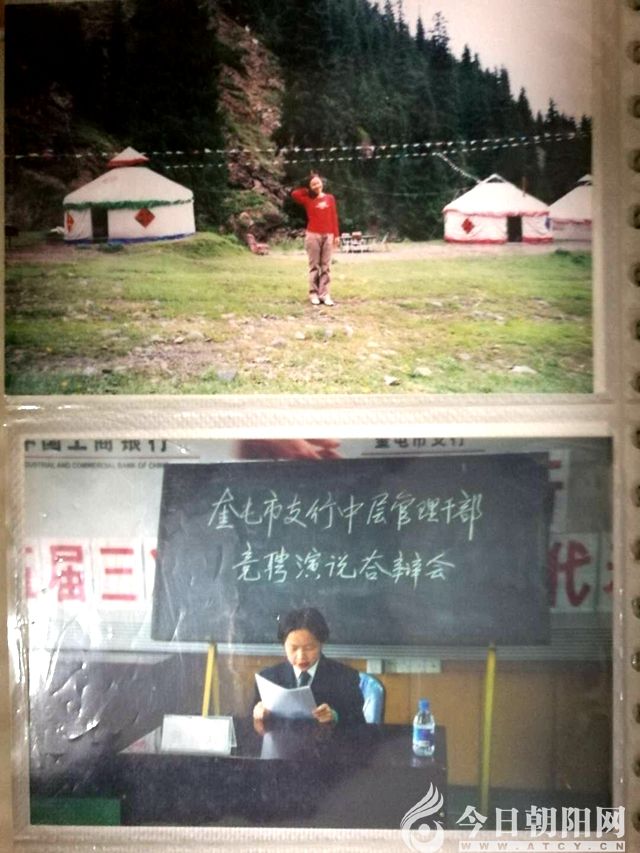 中国工商银行
奎屯市支行
INDUSTRIAL AND COMMERCIAL BANK OF CHINA
奎屯市支行中层管理干部
竞聘演说答辩会
届三
代
今日朝阳网
WWW.ATCY.CN